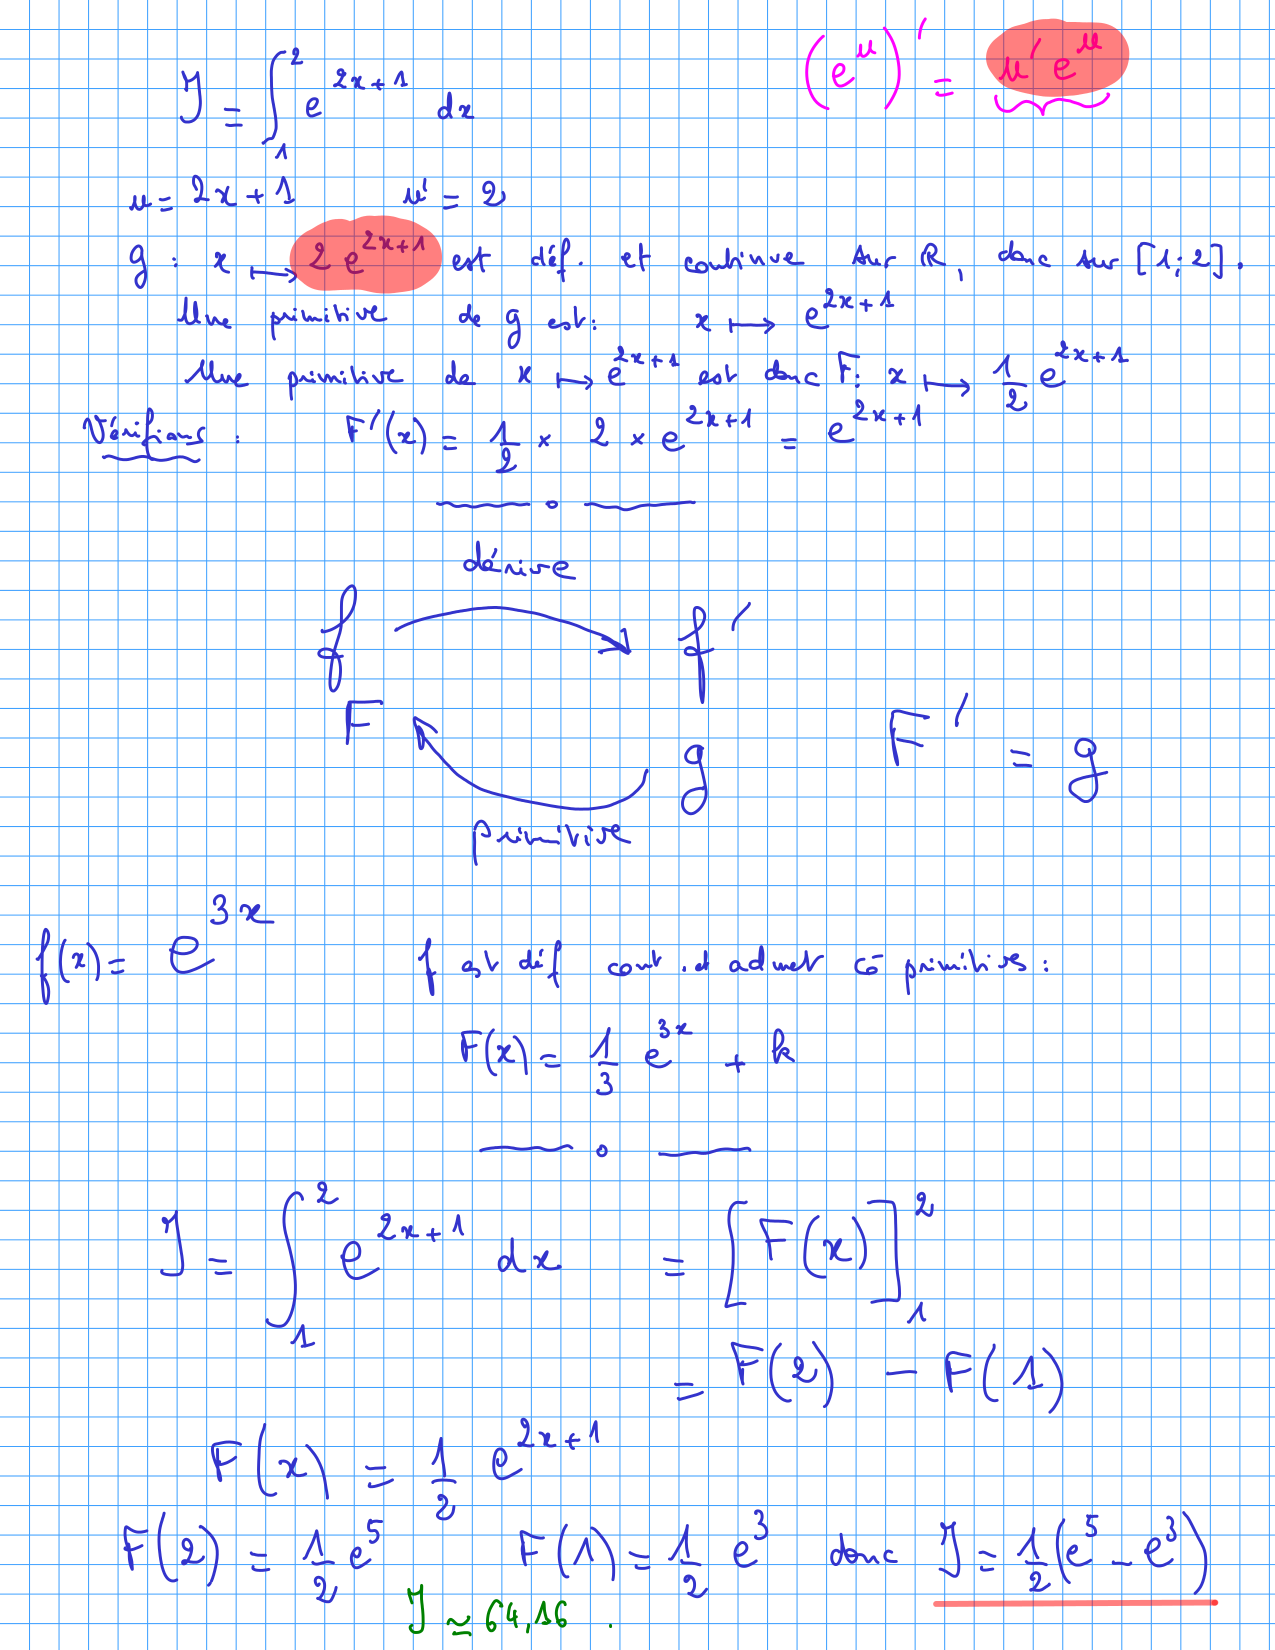 J = ∫₁² e^{2x+1} dx
(e^u)' = u' e^u
u = 2x+1 u' = 2
g : x ↦ 2 e^{2x+1} est déf. et continue sur ℝ, donc sur [1;2].
Une primitive de g est : x ↦ e^{2x+1}
Une primitive de x ↦ e^{2x+1} est donc F: x ↦ 1/2 e^{2x+1}
Vérifions : F'(x) = 1/2 × 2 × e^{2x+1} = e^{2x+1}
dérive
f f'
F g F' = g
primitive
f(x) = e^{3x} f est déf cont. et admet cō primitives :
F(x) = 1/3 e^{3x} + k
J = ∫₁² e^{2x+1} dx = [F(x)]₁²
= F(2) - F(1)
F(x) = 1/2 e^{2x+1}
F(2) = 1/2 e^5 F(1) = 1/2 e^3 donc J = 1/2 (e^5 - e^3)
J ≃ 64,16.